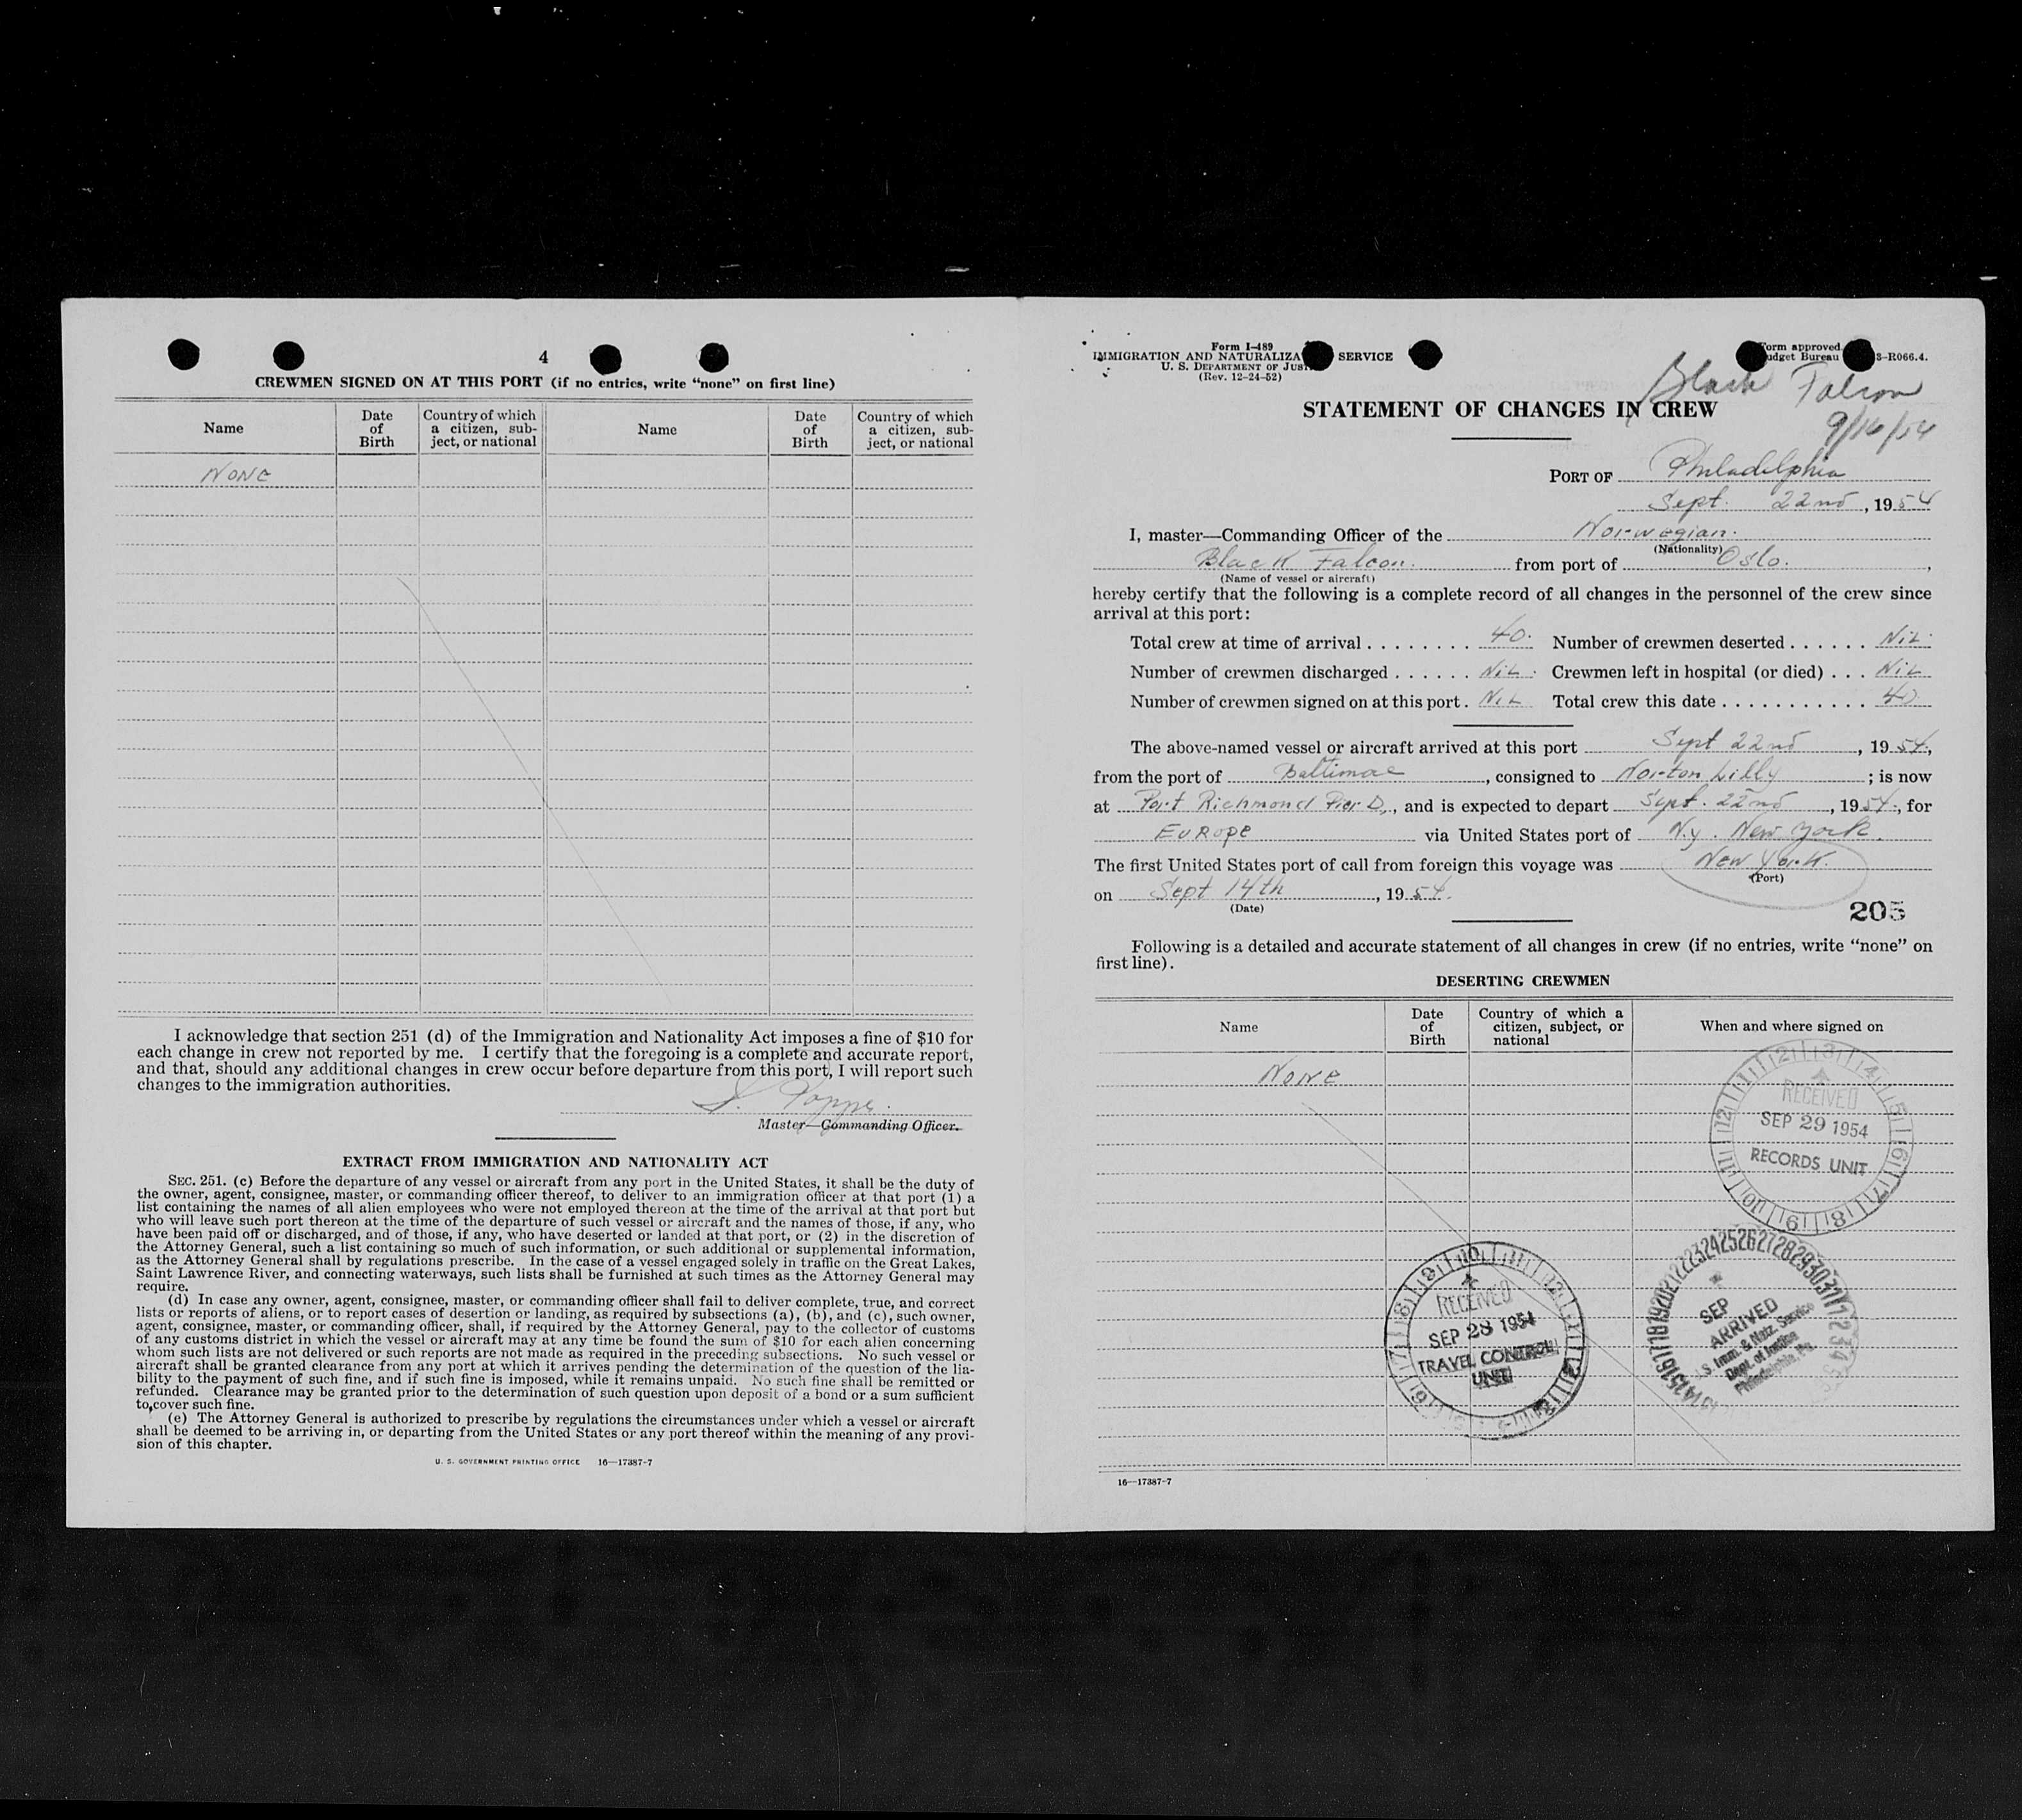 4
CREWMEN SIGNED ON AT THIS PORT (if no entries, write “none” on first line)
Name Date of Birth Country of which a citizen, subject, or national Name Date of Birth Country of which a citizen, subject, or national
NONE
I acknowledge that section 251 (d) of the Immigration and Nationality Act imposes a fine of $10 for
each change in crew not reported by me. I certify that the foregoing is a complete and accurate report,
and that, should any additional changes in crew occur before departure from this port, I will report such
changes to the immigration authorities.
Master—Commanding Officer.
EXTRACT FROM IMMIGRATION AND NATIONALITY ACT
SEC. 251. (c) Before the departure of any vessel or aircraft from any port in the United States, it shall be the duty of
the owner, agent, consignee, master, or commanding officer thereof, to deliver to an immigration officer at that port (1) a
list containing the names of all alien employees who were not employed thereon at the time of the arrival at that port but
who will leave such port thereon at the time of the departure of such vessel or aircraft and the names of those, if any, who
have been paid off or discharged, and of those, if any, who have deserted or landed at that port, or (2) in the discretion of
the Attorney General, such a list containing so much of such information, or such additional or supplemental information,
as the Attorney General shall by regulations prescribe. In the case of a vessel engaged solely in traffic on the Great Lakes,
Saint Lawrence River, and connecting waterways, such lists shall be furnished at such times as the Attorney General may
require.
(d) In case any owner, agent, consignee, master, or commanding officer shall fail to deliver complete, true, and correct
lists or reports of aliens, or to report cases of desertion or landing, as required by subsections (a), (b), and (c), such owner,
agent, consignee, master, or commanding officer, shall, if required by the Attorney General, pay to the collector of customs
of any customs district in which the vessel or aircraft may at any time be found the sum of $10 for each alien concerning
whom such lists are not delivered or such reports are not made as required in the preceding subsections. No such vessel or
aircraft shall be granted clearance from any port at which it arrives pending the determination of the question of the lia-
bility to the payment of such fine, and if such fine is imposed, while it remains unpaid. No such fine shall be remitted or
refunded. Clearance may be granted prior to the determination of such question upon deposit of a bond or a sum sufficient
to cover such fine.
(e) The Attorney General is authorized to prescribe by regulations the circumstances under which a vessel or aircraft
shall be deemed to be arriving in, or departing from the United States or any port thereof within the meaning of any provi-
sion of this chapter.
U. S. GOVERNMENT PRINTING OFFICE 16—17387-7
Form I-489
IMMIGRATION AND NATURALIZA SERVICE
U. S. DEPARTMENT OF JUST
(Rev. 12-24-52)
orm approved.
udget Bureau 3-R066.4.
Black Falcon
9/16/54
STATEMENT OF CHANGES IN CREW
PORT OF Philadelphia
Sept. 22nd, 1954
I, master—Commanding Officer of the Norwegian.
(Nationality)
Black Falcon. from port of Oslo.,
(Name of vessel or aircraft)
hereby certify that the following is a complete record of all changes in the personnel of the crew since
arrival at this port:
Total crew at time of arrival ........ 40. Number of crewmen deserted ...... Nil.
Number of crewmen discharged ...... Nil. Crewmen left in hospital (or died) ... Nil
Number of crewmen signed on at this port. Nil Total crew this date ........... 40
The above-named vessel or aircraft arrived at this port Sept 22nd, 1954,
from the port of Baltimore, consigned to Norton Lilly; is now
at Port Richmond Pier D., and is expected to depart Sept. 22nd, 1954, for
EUROPE via United States port of N.y. New York.
The first United States port of call from foreign this voyage was New York.
(Port)
on Sept 14th, 1954.
(Date)
205
Following is a detailed and accurate statement of all changes in crew (if no entries, write “none” on
first line).
DESERTING CREWMEN
Name Date of Birth Country of which a citizen, subject, or national When and where signed on
NONE
RECEIVED
SEP 29 1954
RECORDS UNIT
RECEIVED
SEP 28 1954
TRAVEL CONTROL
UNIT
SEP
ARRIVED
U.S. Imm. & Natz. Service
Dept. of Justice
Philadelphia, Pa.
16—17387-7